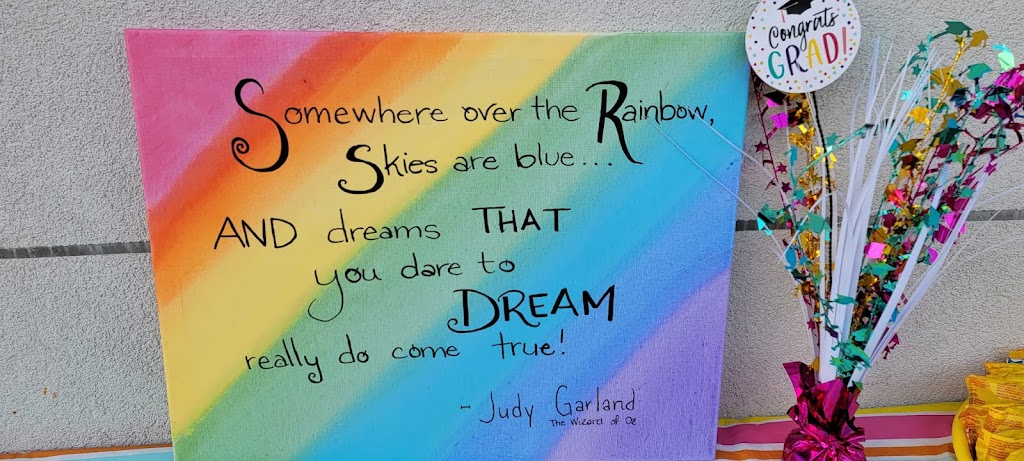 Somewhere over the Rainbow,
Skies are blue...
AND dreams THAT
you dare to
DREAM
really do come true!
- Judy Garland
The Wizard of Oz
Congrats
GRAD!